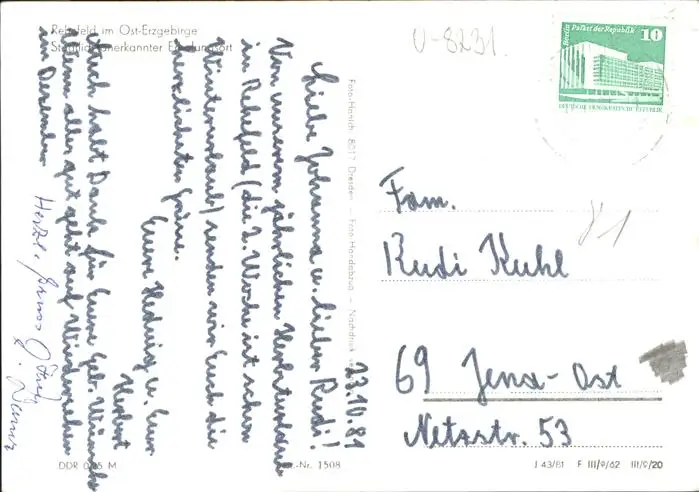 Rehefeld im Ost-Erzgebirge
Staatlich anerkannter Erholungsort
U-8231.
Berlin Palast der Republik
10
DEUTSCHE DEMOKRATISCHE REPUBLIK
23.10.81
Liebe Johanna u. lieber Rudi!
Von unserem jährlichen Herbsturlaub
in Rehefeld (die 2. Woche ist schon
Winterurlaub) senden wir Euch die
herzlichsten Grüße.
Eure Hedwig u. Euer
Herbert
Auch habt Dank für Eure Geb. Wünsche
Wenn alles gut geht auf Wiedersehen
im Dezember
Herzl.
Foto-Handabzug
Fam.
Rudi Kuhl
69 Jena-Ost
Netzstr. 53
DDR M
-Nr. 1508
J 43/81 F III/9/62 III/9/20